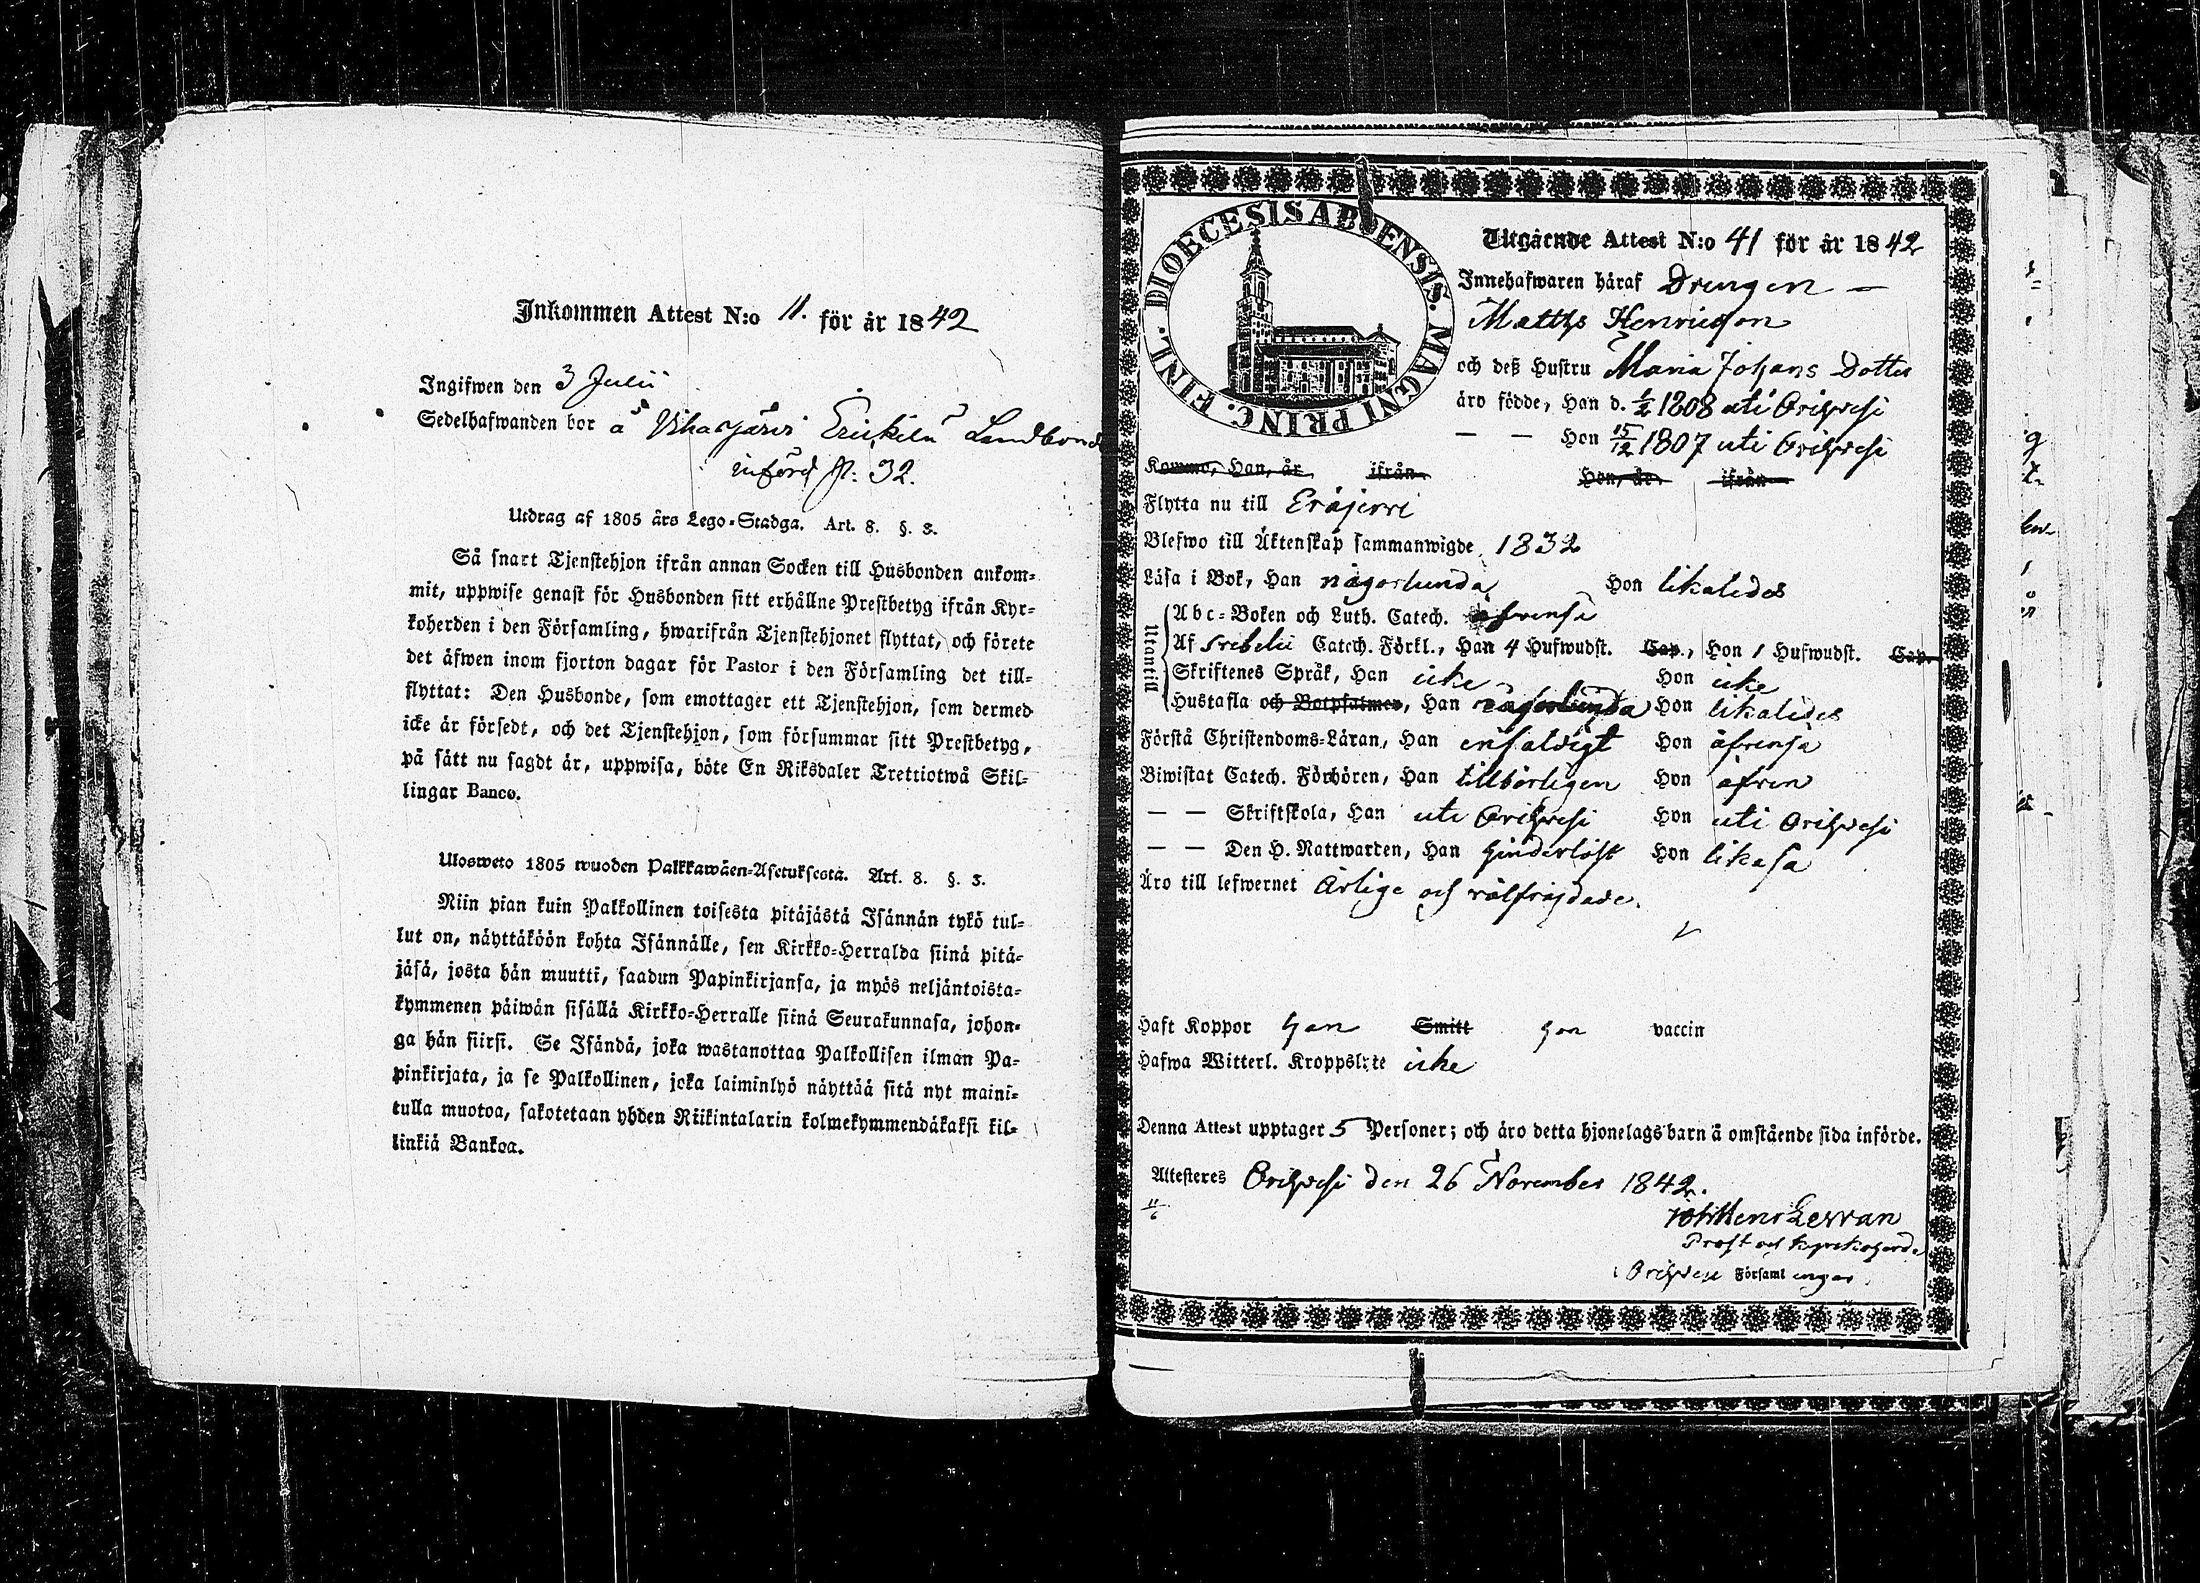 Inkommen Attest N:o 11. för år 1842
Ingifwen den 3 Julii
Sedelhafwanden bor å Vihasjärvi Erickilä Landbonde
införd p: 32.
Utdrag af 1805 års Lego-Stadga. Art. 8. §. 3.
Så snart Tjenstehjon ifrån annan Socken till Husbonden ankom-
mit, uppwise genast för Husbonden sitt erhållne Prestbetyg ifrån Kyr-
koherden i den Församling, hwarifrån Tjenstehjonet flyttat, och förete
det äfwen inom fjorton dagar för Pastor i den Församling det till-
flyttat: Den Husbonde, som emottager ett Tjenstehjon, som dermed
icke är försedt, och det Tjenstehjon, som försummar sitt Prestbetyg,
på sätt nu sagdt är, uppwisa, böte En Riksdaler Trettiotwå Skil-
lingar Banco.
Ulosweto 1805 wuoden Palkkawäen-Asetuksesta. Art. 8. §. 3.
Niin pian kuin Palkollinen toisesta pitäjästä Isännän tykö tul-
lut on, näyttäköön kohta Isännälle, sen Kirkko-Herralda siinä pitä-
jäsä, josta hän muutti, saadun Papinkirjansa, ja myös neljäntoista-
kymmenen päiwän sisällä Kirkko-Herralle siinä Seurakunnasa, johon-
ga hän siirsi. Se Isändä, joka wastanottaa Palkollisen ilman Pa-
pinkirjata, ja se Palkollinen, joka laiminlyö näyttää sitä nyt maini-
tulla muotoa, sakotetaan yhden Riikintalarin kolmekymmendäkaksi kil-
linkiä Bankoa.
DIOECESIS ABOENSIS. MAGNI PRINC. FINL.
Utgående Attest N:o 41 för år 1842
Innehafwaren häraf Drengen
Matths Henricsson
och deß Hustru Maria Johans Dotter
äro födde, Han d. 6/2 1808 uti Orihvesi
— — Hon 15/12 1807 uti Orihvesi
Komne, Han, år ifrån Hon, år ifrån
Flytta nu till Eräjervi
Blefwo till Äktenskap sammanwigde 1832
Läsa i Bok, Han någorlunda Hon likaledes
Utantill
Abc-Boken och Luth. Catech. äfvenså
Af Svebelii Catech. Förkl., Han 4 Hufwudst. Cap., Hon 1 Hufwudst. Cap.
Skriftenes Språk, Han icke Hon icke
Hustafla och Botpsalmer, Han någorlunda Hon likaledes
Förstå Christendoms-Läran, Han enfaldigt Hon äfvenså
Biwistat Catech. Förhören, Han tillbörligen Hon äfven
— — Skriftskola, Han uti Orihvesi Hon uti Orihvesi
— — Den H. Nattwarden, Han hinderlöst Hon likaså
Äro till lefwernet Ärlige och välfräjdade.
Haft Koppor han Smitt hon vaccin
Hafwa Witterl. Kroppslyte icke
Denna Attest upptager 5 Personer; och äro detta hjonelags barn å omstående sida införde.
Attesteres Orihvesi den 26 November 1842.
Prost och Kyrckoherde
i Orihvesi Församlingar